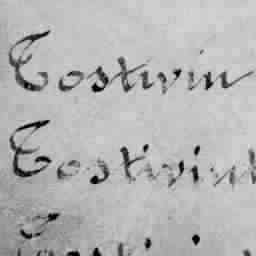 Tostivin
Tostivint